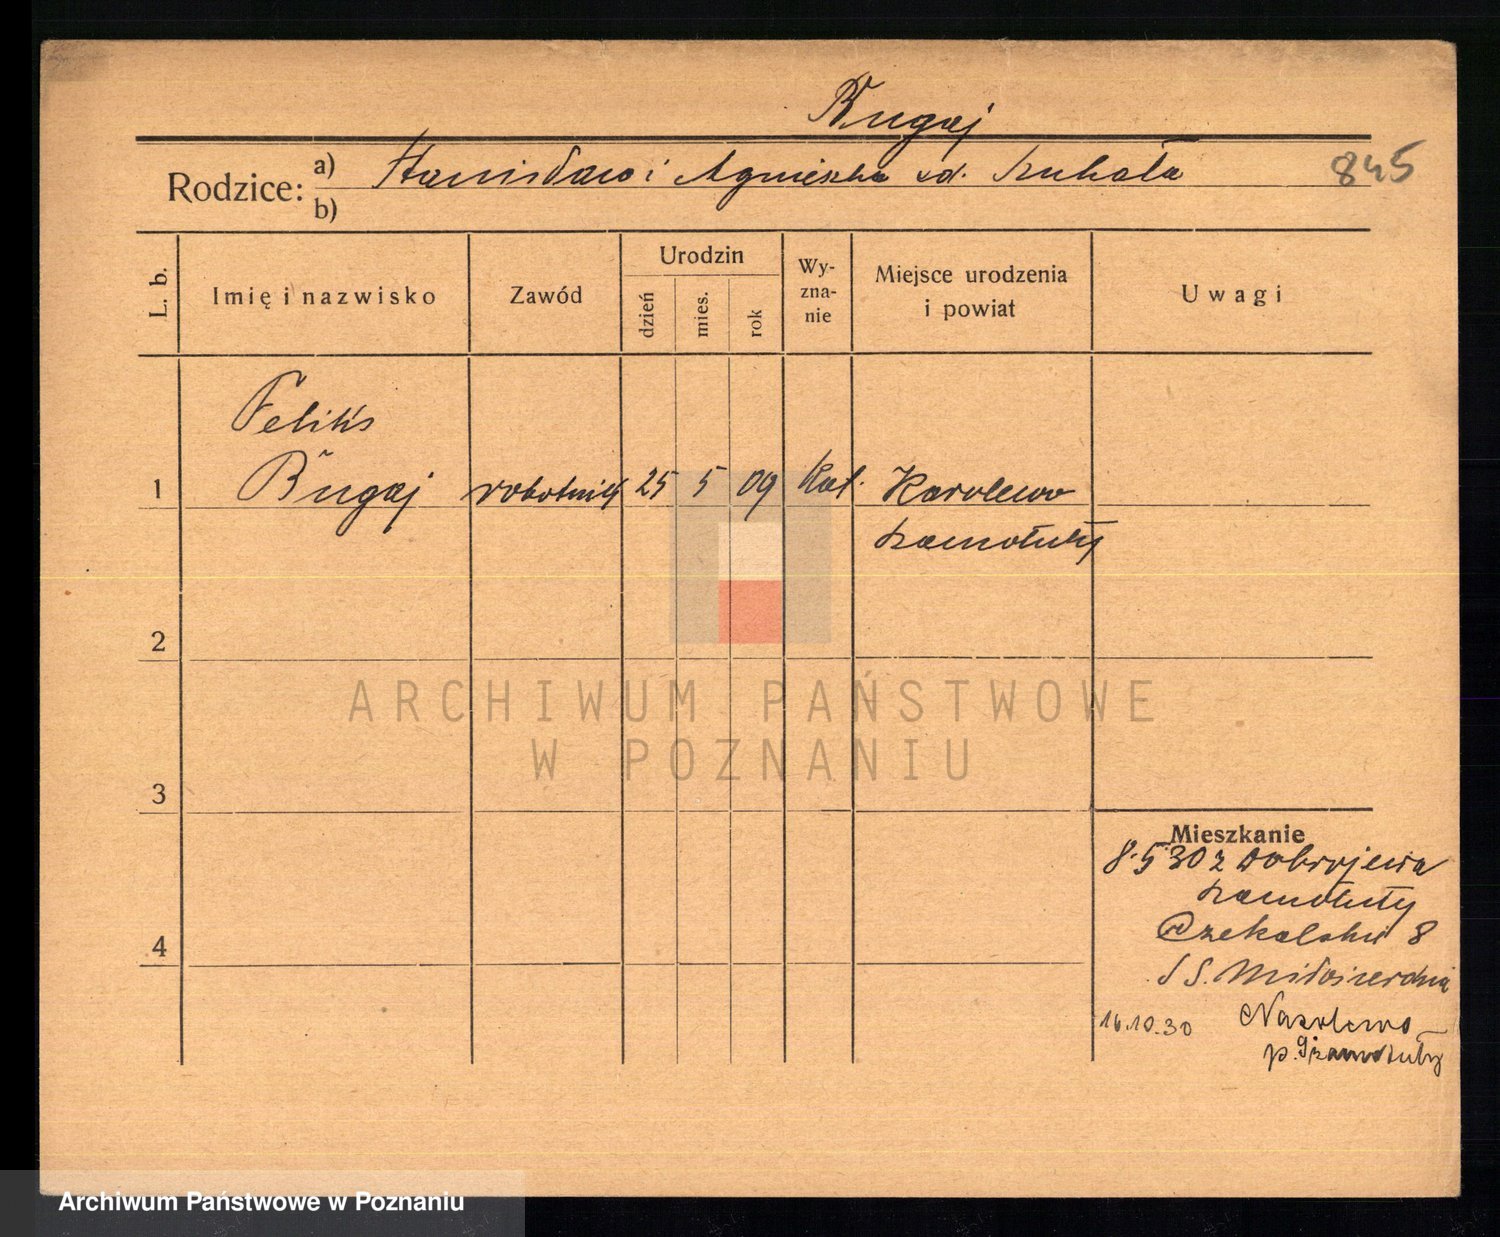 Bugaj
Rodzice: a) Stanisław i Agnieszka zd. Kukała
b)
845
L. b.
Imię i nazwisko
Zawód
Urodzin
dzień
mies.
rok
Wy-
zna-
nie
Miejsce urodzenia
i powiat
Uwagi
Feliks
1 Bugaj robotnik 25 5 09 Kat. Karolewo
Szamotuły
2
ARCHIWUM PAŃSTWOWE
W POZNANIU
3
Mieszkanie
8.5 30 z Dobrojewa
Szamotuły
4
8
S S. Miłosierdzia
16.10.30
p. Szamotuły
Archiwum Państwowe w Poznaniu